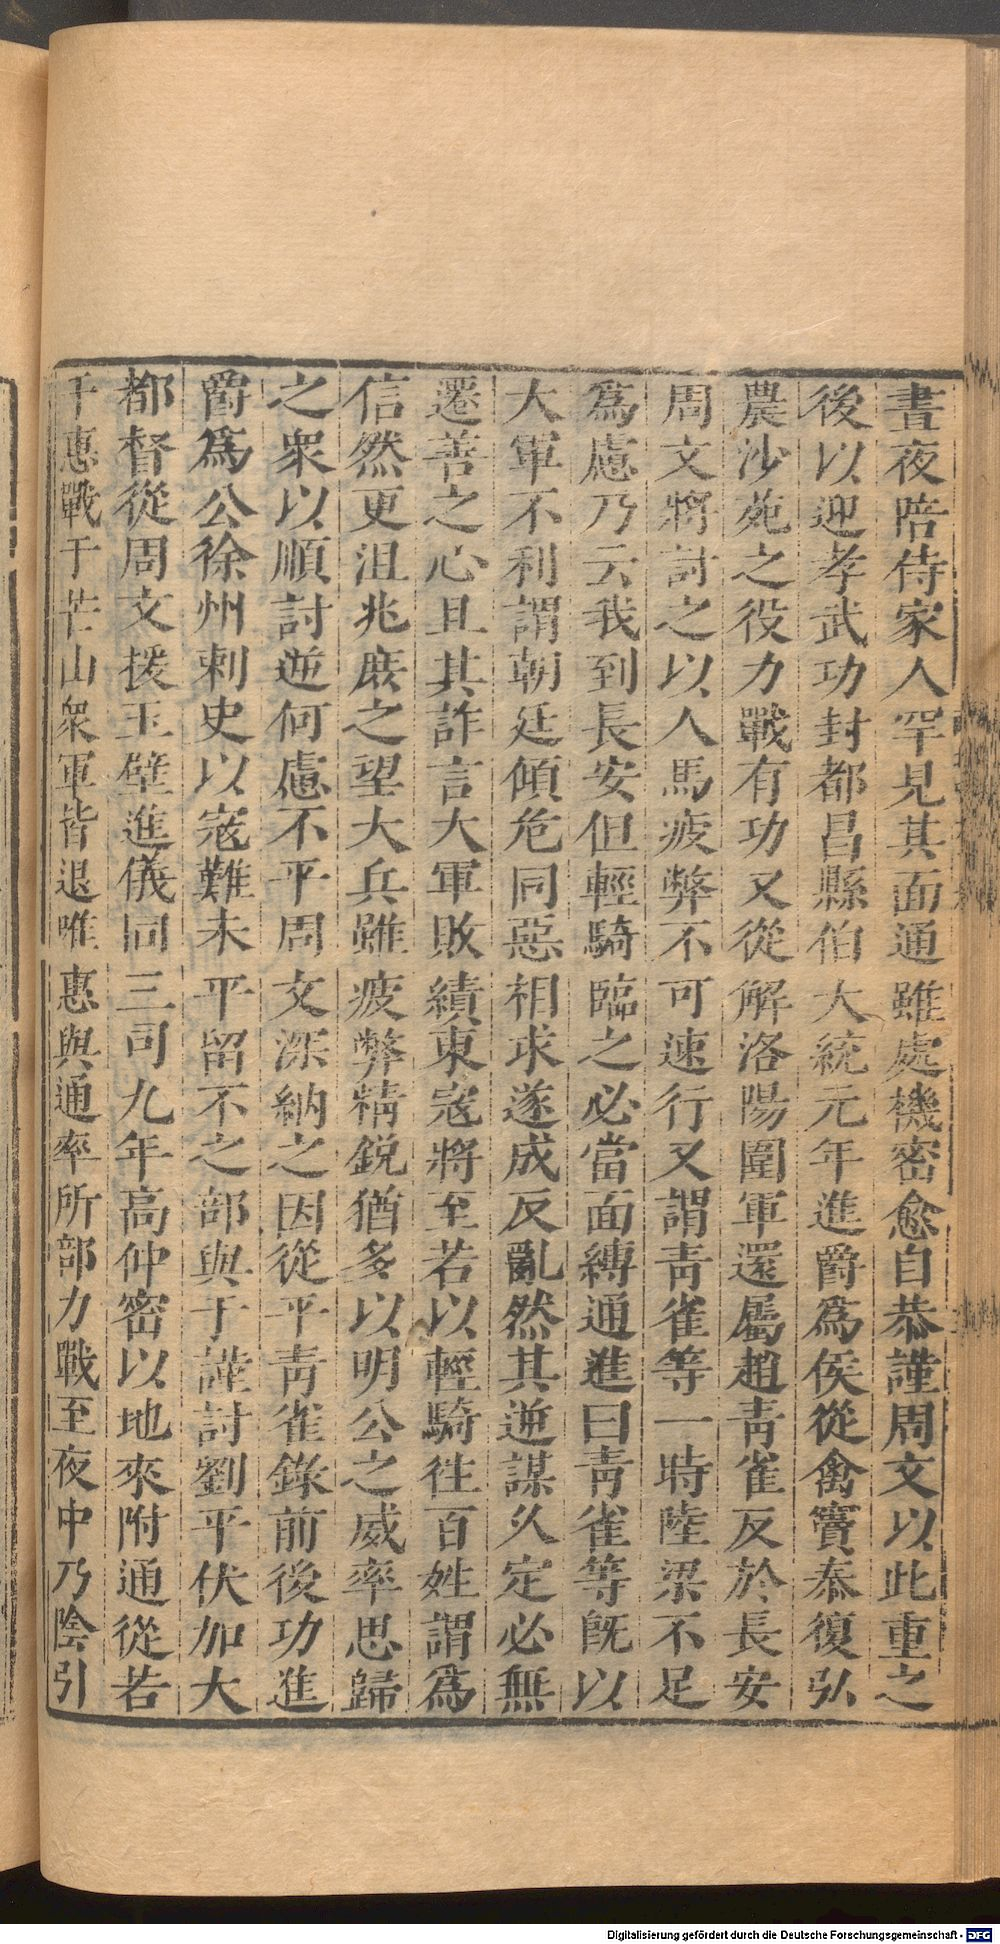 晝夜陪侍家人罕見其面通雖處機密愈自恭謹周文以此重之
後以迎孝武功封都昌縣伯大統元年進爵爲侯從禽竇泰復弘
農沙苑之役力戰有功又從解洛陽圍軍還屬趙靑雀反於長安
周文將討之以人馬疲弊不可速行又謂靑雀等一時陸梁不足
爲慮乃云我到長安但輕騎臨之必當面縛通進曰靑雀等旣以
大軍不利謂朝廷傾危同惡相求遂成反亂然其逆謀久定必無
遷善之心且其詐言大軍敗績東寇將至若以輕騎徃百姓謂爲
信然更沮兆庶之望大兵雖疲弊精銳猶多以明公之威率思歸
之衆以順討逆何慮不平周文深納之因從平靑雀錄前後功進
爵爲公徐州刺史以寇難未平留不之部與于謹討劉平伏加大
都督從周文援玉壁進儀同三司九年高仲密以地來附通從若
干惠戰于芒山衆軍皆退唯惠與通率所部力戰至夜中乃陰引
Digitalisierung gefördert durch die Deutsche Forschungsgemeinschaft - DFG